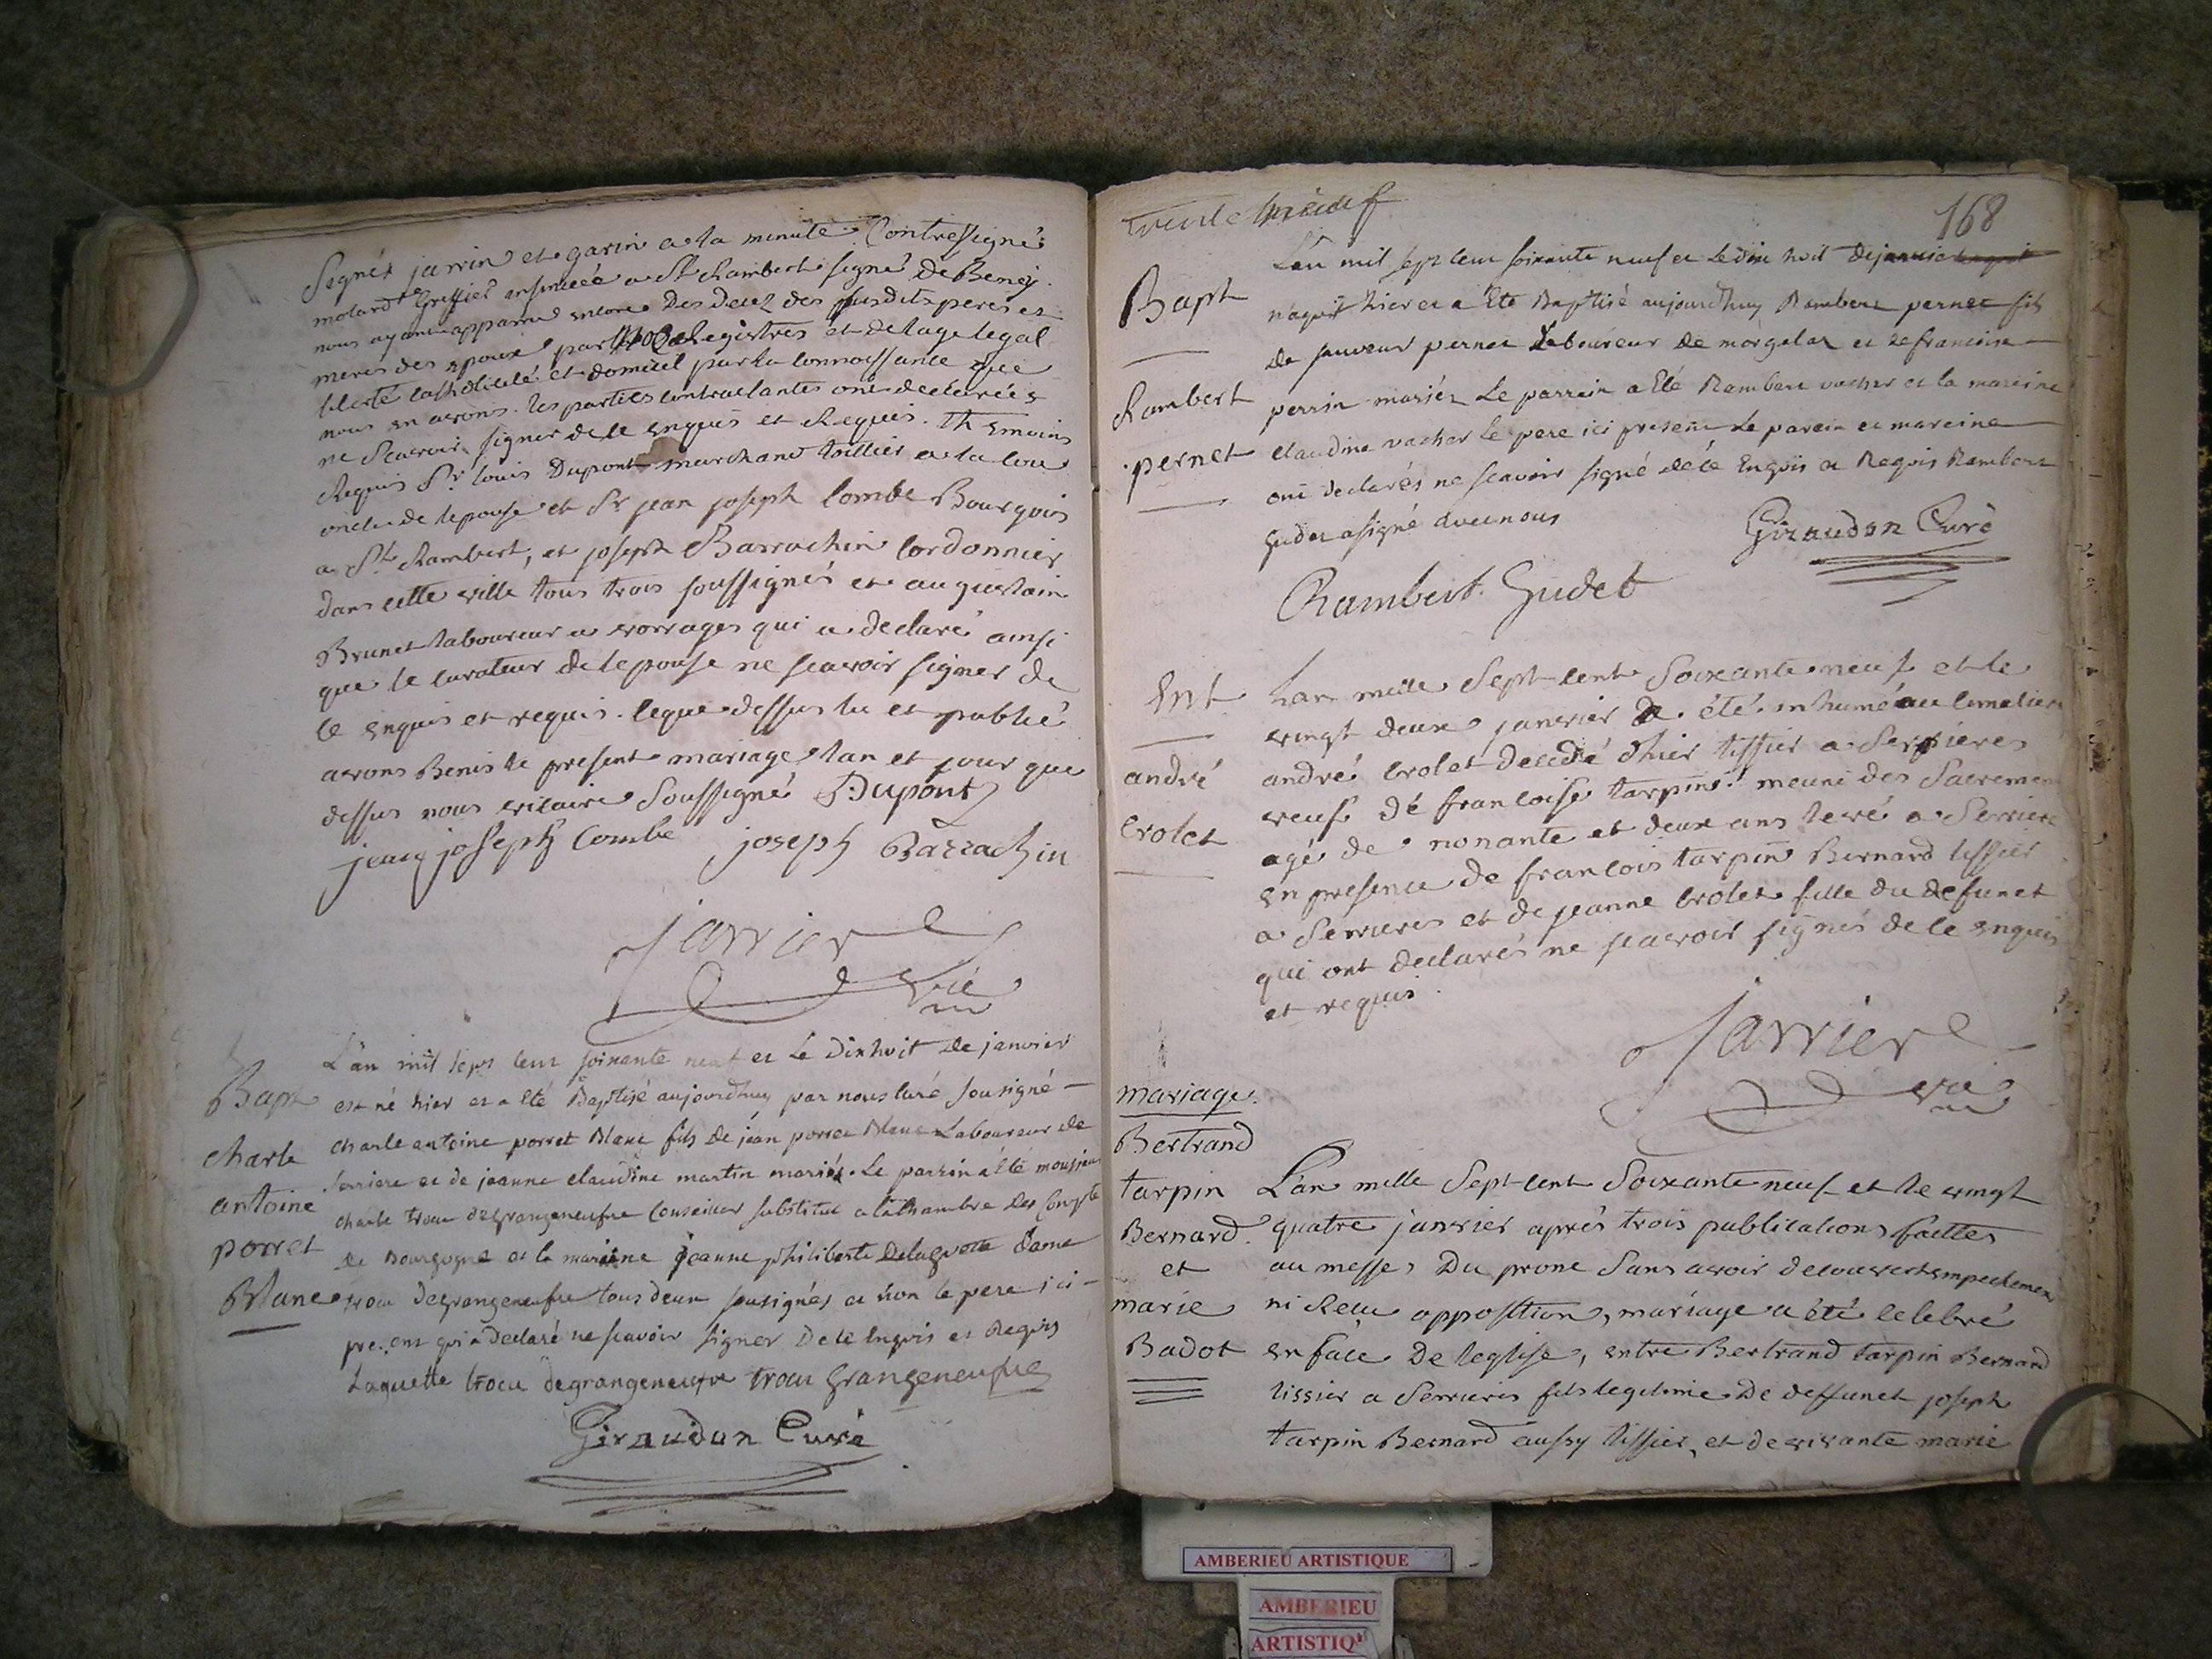 Signés jarrin et garin a la minute Contresigné
molard Greffier insinuée a St Rambert signé De Benej.
nous ayant apparu encore Des Decez des susdits peres et
meres des epoux par Registres et de lage legal
liberté catholicité et domicil par la connoissance que
nous en avons. les parties contractantes ont declarées
ne scavoir signer de ce enquis et Requis. Themoins
Requis Sr louis Dupont marchand toillier a la cou
oncle de lepouse et Sr jean joseph Combe Bourgois
a St Rambert, et joseph Barrachin Cordonnier
dans cette ville tous trois soussignés et augustain
Brunet laboureur a vorrages qui a declaré ainsi
que le curateur de lepouse ne scavoir signer de
ce enquis et requis. leque dessus lu et publié
avons Benis le present mariage lan et jour que
dessus nous vicaire Soussigné Dupont
jean joseph Combe joseph Barrachin
Jarrier
vic
Bapt
charle
antoine
porret
Blanc
L'an mil sept cent soixante neuf et Le Dixhuit de janvier
est né hier et a Eté Baptisé aujourdhuy par nous curé sousigné
charle antoine porret Blanc fils De jean porret Blanc Laboureur de
serriere et de jeanne claudine martin mariés. Le parrin a Eté monsieur
charle trocu degrangeneufve Conseiller substitut a la chambre Des Compte
De Bourgogne et la mareine jeanne philiberte Delaguette dame
trocu Degrangeneufve tous deux sousignés et non le pere ici
present qui a declaré ne scavoir signer De ce Enquis et Requis
Laguette trocu degrangeneufve trocu Grangeneufve
Giraudon Curé
trente neuf
168
Bapt
Rambert
pernet
L'an mil sept cent soixante neuf et Le dix huit De janvie
naquit hier et a Eté Baptisé aujourdhuy Rambert pernet fils
de sauveur pernet Laboureur De morgelas et de francoise
perrin mariés Le parrein a Eté Rambert vacher et la mareine
claudine vacher Le pere ici present Le parein et mareine
ont declarés ne scavoir signé dece Enquis et Requis Rambert
Gudet a signé avec nous
Giraudon Curé
Rambert Gudet
Ent
andré
crolet
Lan mille Sept cent Soixante neuf et le
vingt deux janvier a été inhumé au cimetiere
andré crolet decedé dhier tissier a Serrieres
veuf de francoise tarpin meuni des Sacremen
agé de nonante et deux ans levé a Serriere
en presence de francois tarpin Bernard tissier
a Serrieres et de jeanne crolet fille du defunct
qui ont declarés ne scavoir signés de ce enquis
et requis.
Jarrier
vic
mariage
Bertrand
tarpin
Bernard.
et
marie
Badot
L'an mille Sept cent Soixante neuf et le vingt
quatre janvier après trois publications faittes
au messes Du prone Sans avoir decouvert empechemen
ni Recu opposition, mariage a été celebré
en face De leglise, entre Bertrand tarpin Bernard
tissier a Serrieres fils legitime De deffunct joseph
tarpin Bernard aussy tissier, et de vivante marie
AMBERIEU ARTISTIQUE
AMBERIEU
ARTISTIQ